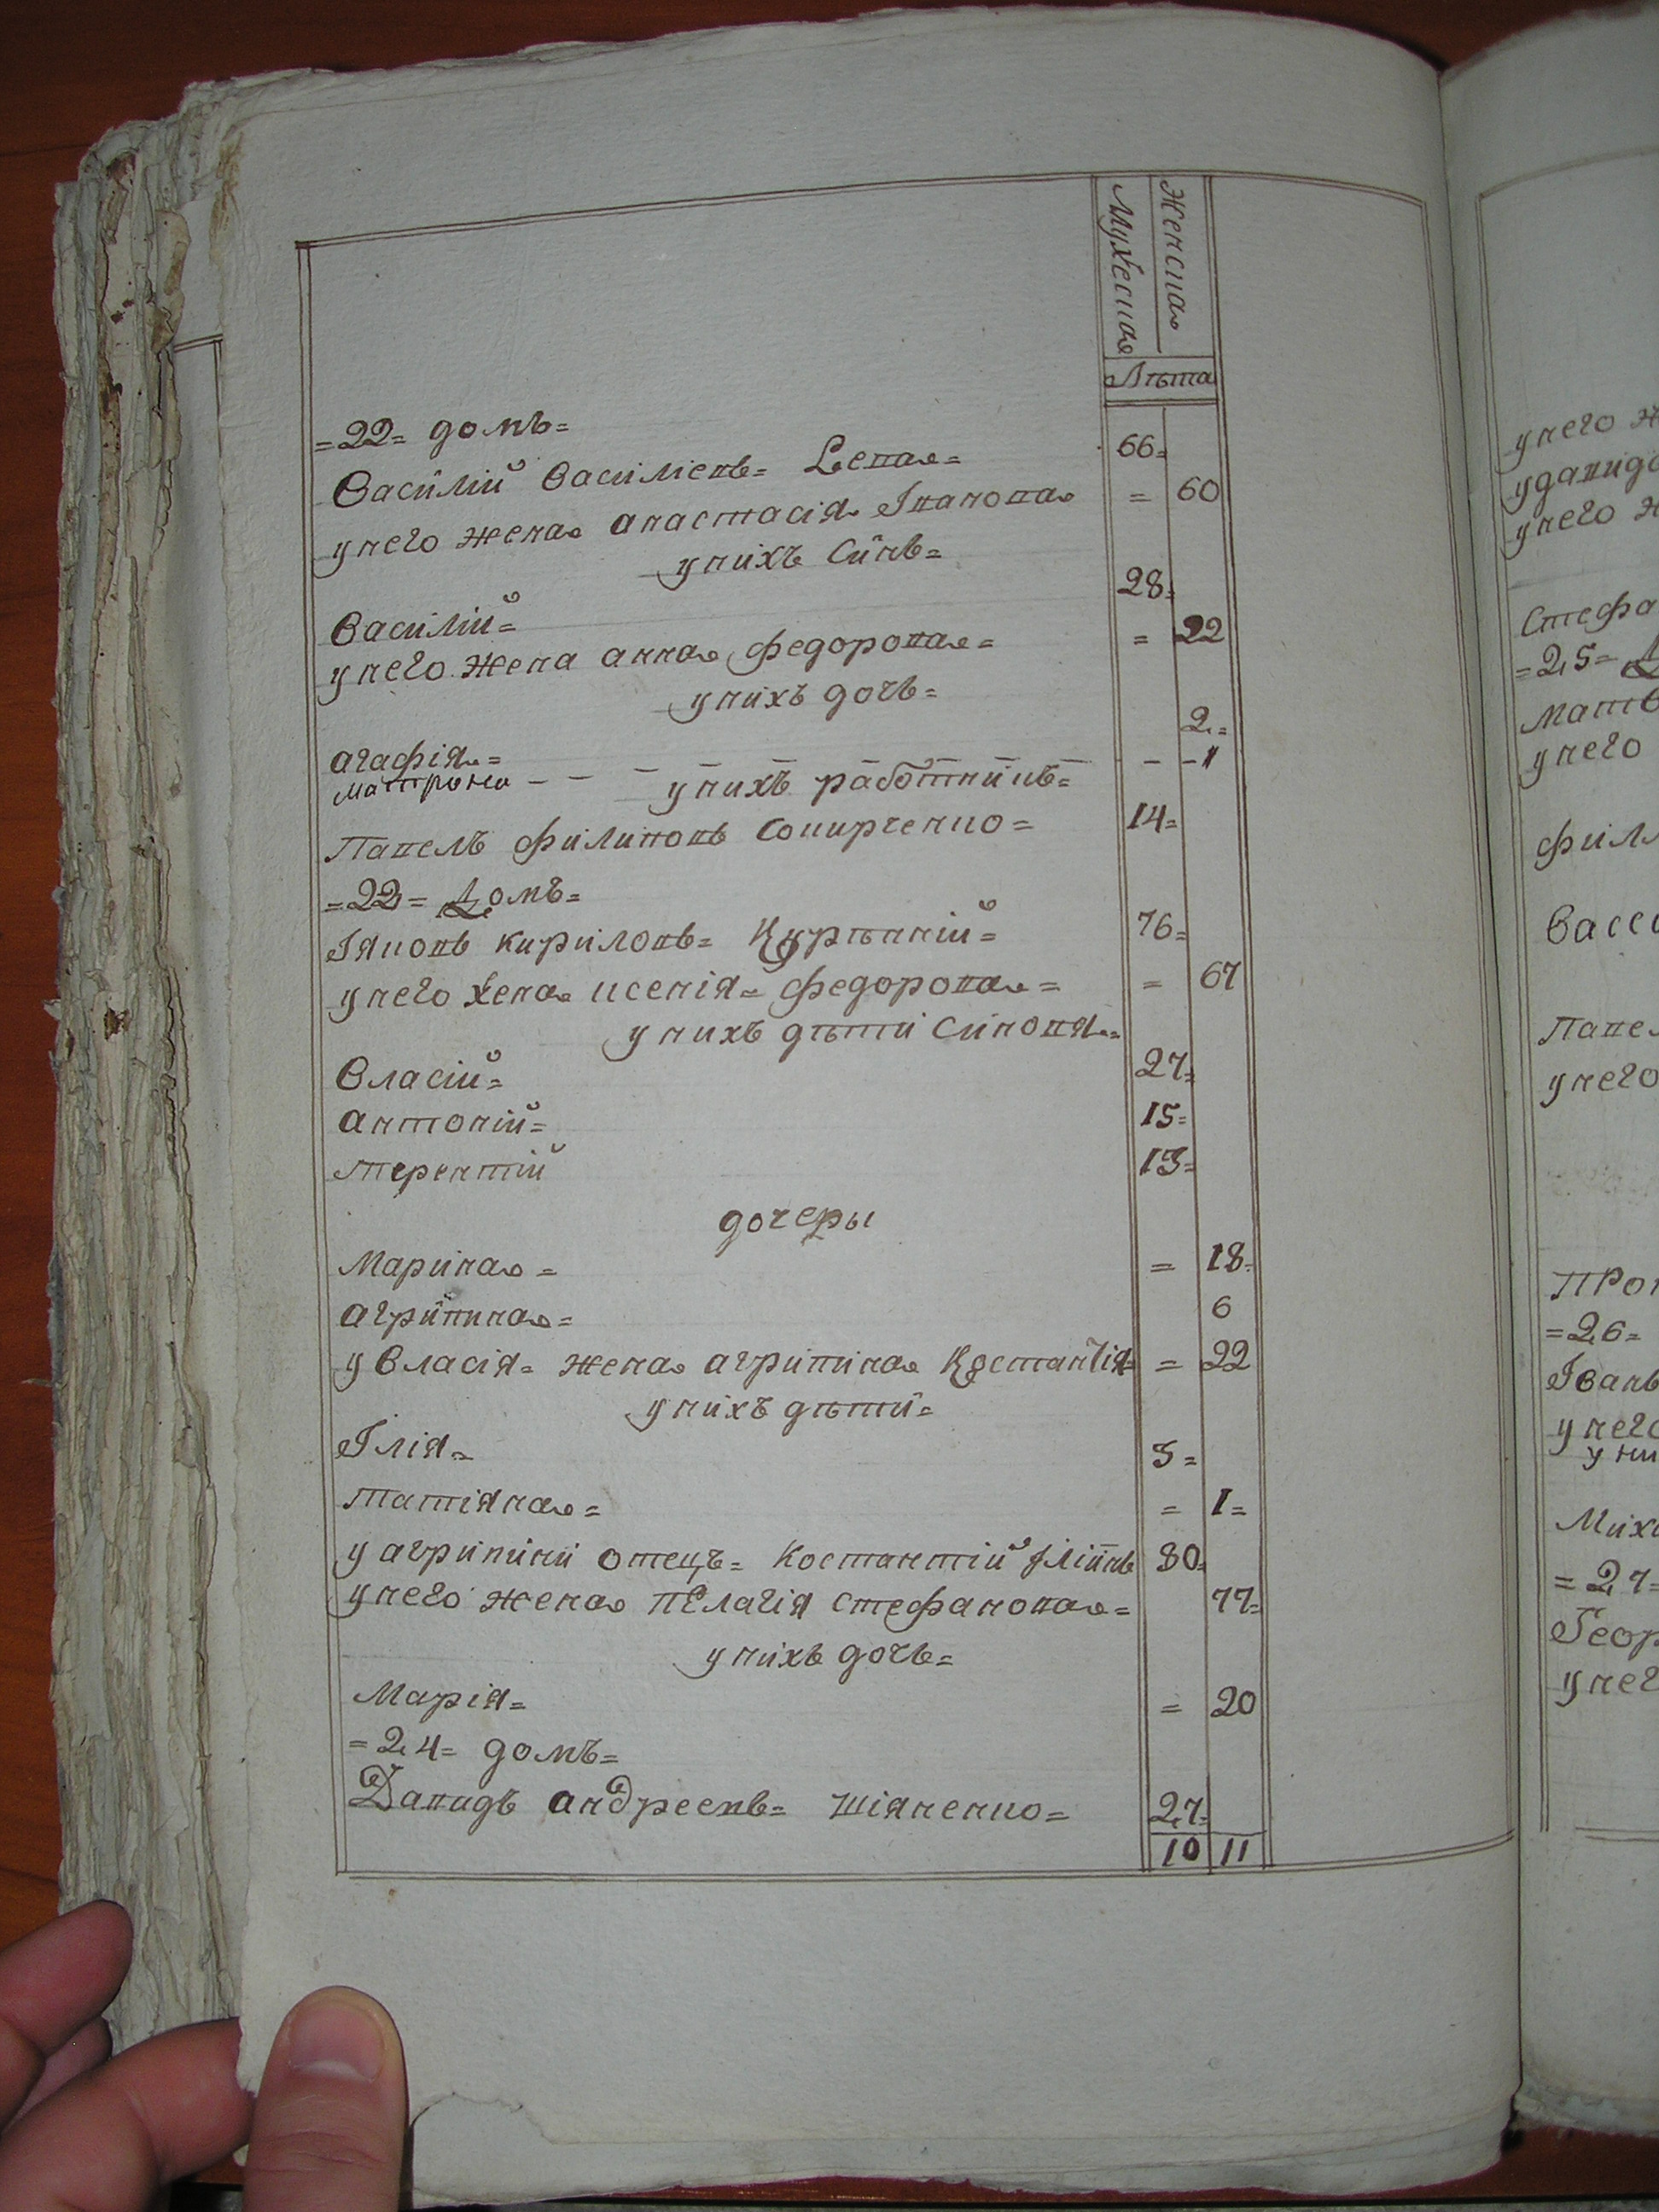 Мужеска Женска
Лѣта
=22= домъ=
Василій Василіевъ= Lевая= 66=
у него жена анастасія Івановая = 60
у нихъ Синъ=
Василій= 28=
у него жена анна федоровая= = 22
у нихъ дочъ=
агафія= 2=
матрона - - - - - -1
у нихъ работникъ=
Павелъ филиповъ Сокирченко= 14=
=22= Домъ=
Іяковъ кириловъ= Курѣнній= 76=
у него жена ксенія= федоровая= = 67
у нихъ дѣти Синовя=
Власій= 27=
антоній= 15=
терентій 13=
дочеры
Марина= = 18=
агрипина= 6
у Власія= жена агрипина Костантія= = 22
у нихъ дѣти=
Ілія= 5=
татіяна= = 1=
у агрипини отецъ= Костантій Іліинъ 80=
у него жена пелагія стефановая= 77=
у нихъ дочъ=
Марія= = 20
=24= домъ=
Давидъ андреевъ= шіяненко= 27=
10 11
у него
у него
Стефа
=25=
у него
Павел
у него
=26=
Іванъ
у него
у ни
Миха
=27=
Геор
у нег